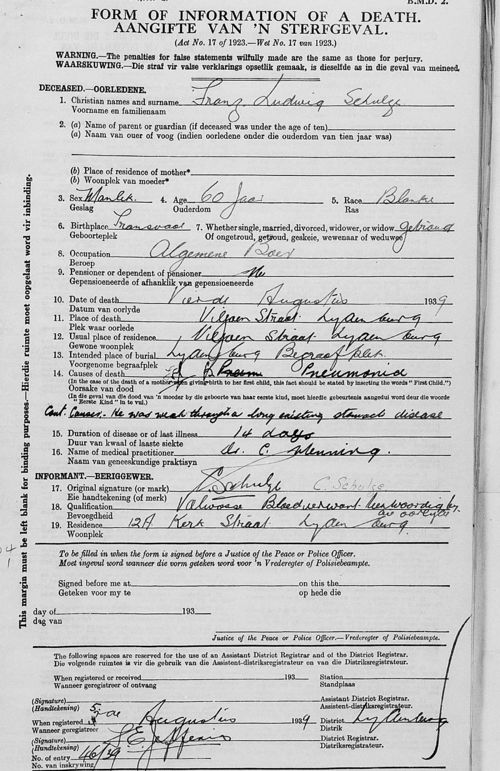 B.M.D. 2.
FORM OF INFORMATION OF A DEATH.
AANGIFTE VAN 'N STERFGEVAL.
(Act No. 17 of 1923.—Wet No. 17 van 1923.)
WARNING.—The penalties for false statements wilfully made are the same as those for perjury.
WAARSKUWING.—Die straf vir valse verklarings opsetlik gemaak, is dieselfde as in die geval van meineed.
DECEASED.—OORLEDENE.
1. Christian names and surname Franz Ludwig Schulze
Voornaam en familienaam
2. (a) Name of parent or guardian (if deceased was under the age of ten)
(a) Naam van ouer of voog (indien oorledene onder die ouderdom van tien jaar was)
(b) Place of residence of mother*
(b) Woonplek van moeder*
3. Sex Manlik 4. Age 60 Jaar 5. Race Blanke
Geslag Ouderdom Ras
6. Birthplace Transvaal 7. Whether single, married, divorced, widower, or widow Getroud
Geboorteplek Of ongetroud, getroud, geskeie, wewenaar of weduwee
8. Occupation Algemene Boer
Beroep
9. Pensioner or dependent of pensioner
Gepensioeneerde of afhanklik van gepensioeneerde
10. Date of death Vierde Augustus 1939
Datum van oorlyde
11. Place of death Viljoen Straat Lydenburg
Plek waar oorlede
12. Usual place of residence Viljoen Straat Lydenburg
Gewone woonplek
13. Intended place of burial Lydenburg Begraafplek
Voorgenome begraafplek
14. Causes of death Pneumonia
(In the case of the death of a mother upon giving birth to her first child, this fact should be stated by inserting the words "First Child.")
Oorsake van dood
(In die geval van die dood van 'n moeder by die geboorte van haar eerste kind, moet hierdie gebeurtenis aangedui word deur die woorde "Eerste Kind" in te vul.)
Cont. Causes. He was weak through a long existing stomach disease
15. Duration of disease or of last illness 14 days
Duur van kwaal of laaste siekte
16. Name of medical practitioner Dr. C.
Naam van geneeskundige praktisyn
INFORMANT.—BERIGGEWER.
17. Original signature (or mark) C. Schulze C. Schulze
Eie handtekening (of merk)
18. Qualification Volwasse Bloedverwant teenwoordig by
Bevoegdheid die oorlyde
19. Residence 12A Kerk Straat Lydenburg
Woonplek
To be filled in when the form is signed before a Justice of the Peace or Police Officer.
Moet ingevul word wanneer die vorm geteken word voor 'n Vrederegter of Polisiebeampte.
Signed before me at on this the
Geteken voor my te op hede die
day of 193
dag van
Justice of the Peace or Police Officer.—Vrederegter of Polisiebeampte.
The following spaces are reserved for the use of an Assistant District Registrar and of the District Registrar.
Die volgende ruimtes is vir die gebruik van die Assistent-distriksregistrateur en van die Distriksregistrateur.
When registered or received 193 Station
Wanneer geregistreer of ontvang Standplaas
(Signature) Assistant District Registrar.
(Handtekening) Assistent-distriksregistrateur.
When registered 5 Augustus 1939 District Lydenburg
Wanneer geregistreer Distrik
(Signature) District Registrar.
(Handtekening) Distriksregistrateur.
No. of entry 46/39
No. van inskrywing
This margin must be left blank for binding purposes.—Hierdie ruimte moet oopgelaat word vir inbinding.